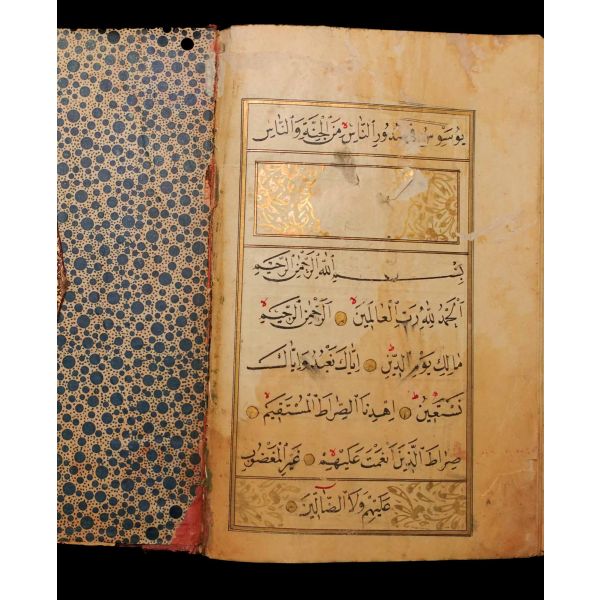 يُوَسْوِسُ فِي صُدُورِ النَّاسِ مِنَ الْجِنَّةِ وَالنَّاسِ
بِسْمِ اللَّهِ الرَّحْمَٰنِ الرَّحِيمِ
الْحَمْدُ لِلَّهِ رَبِّ الْعَالَمِينَ الرَّحْمَٰنِ الرَّحِيمِ
مَالِكِ يَوْمِ الدِّينِ إِيَّاكَ نَعْبُدُ وَإِيَّاكَ
نَسْتَعِينُ اِهْدِنَا الصِّرَاطَ الْمُسْتَقِيمَ
صِرَاطَ الَّذِينَ أَنْعَمْتَ عَلَيْهِمْ غَيْرِ الْمَغْضُوبِ
عَلَيْهِمْ وَلَا الضَّالِّينَ